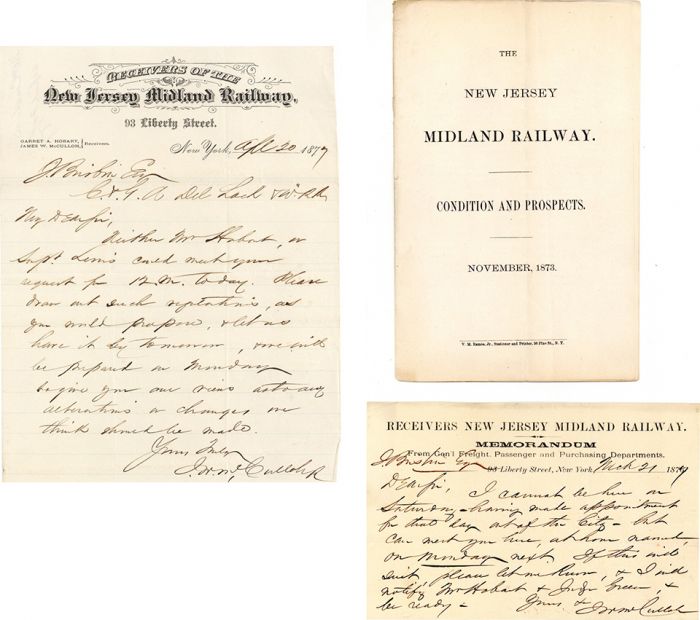 RECEIVERS OF THE
New Jersey Midland Railway,
93 Liberty Street.
GARRET A. HOBART,
JAMES W. McCULLOH,
Receivers.
New York, Apl 20 1877
J. Brisbin Esq
C & G. A Del Lack & W. RR
My Dear Sir,
Neither Mr Hobart, or
Supt. Lewis could meet your
request for 12 M. today. Please
draw out such as
you would propose, & let us
have it by tomorrow, & we will
be prepared on Monday
to give you our views as to any
alterations or changes we
think should be made.
Yours Truly
J. W. McCulloh R
THE
NEW JERSEY
MIDLAND RAILWAY.
CONDITION AND PROSPECTS.
NOVEMBER, 1873.
Stationer and Printer, 50 Pine St., N. Y.
RECEIVERS NEW JERSEY MIDLAND RAILWAY.
MEMORANDUM
From Gen'l Freight, Passenger and Purchasing Departments.
J Brisbin Esq 93 Liberty Street, New York, Mch 21 1877
Dear Sir, I cannot be here on
Saturday - having made appointment
for that day out of the City - but
can meet you here, at hour named
on Monday next. If this will
suit, please let me know, & I will
notify Mr Hobart & Judge Green, &
be ready - Yours &c J W McCulloh